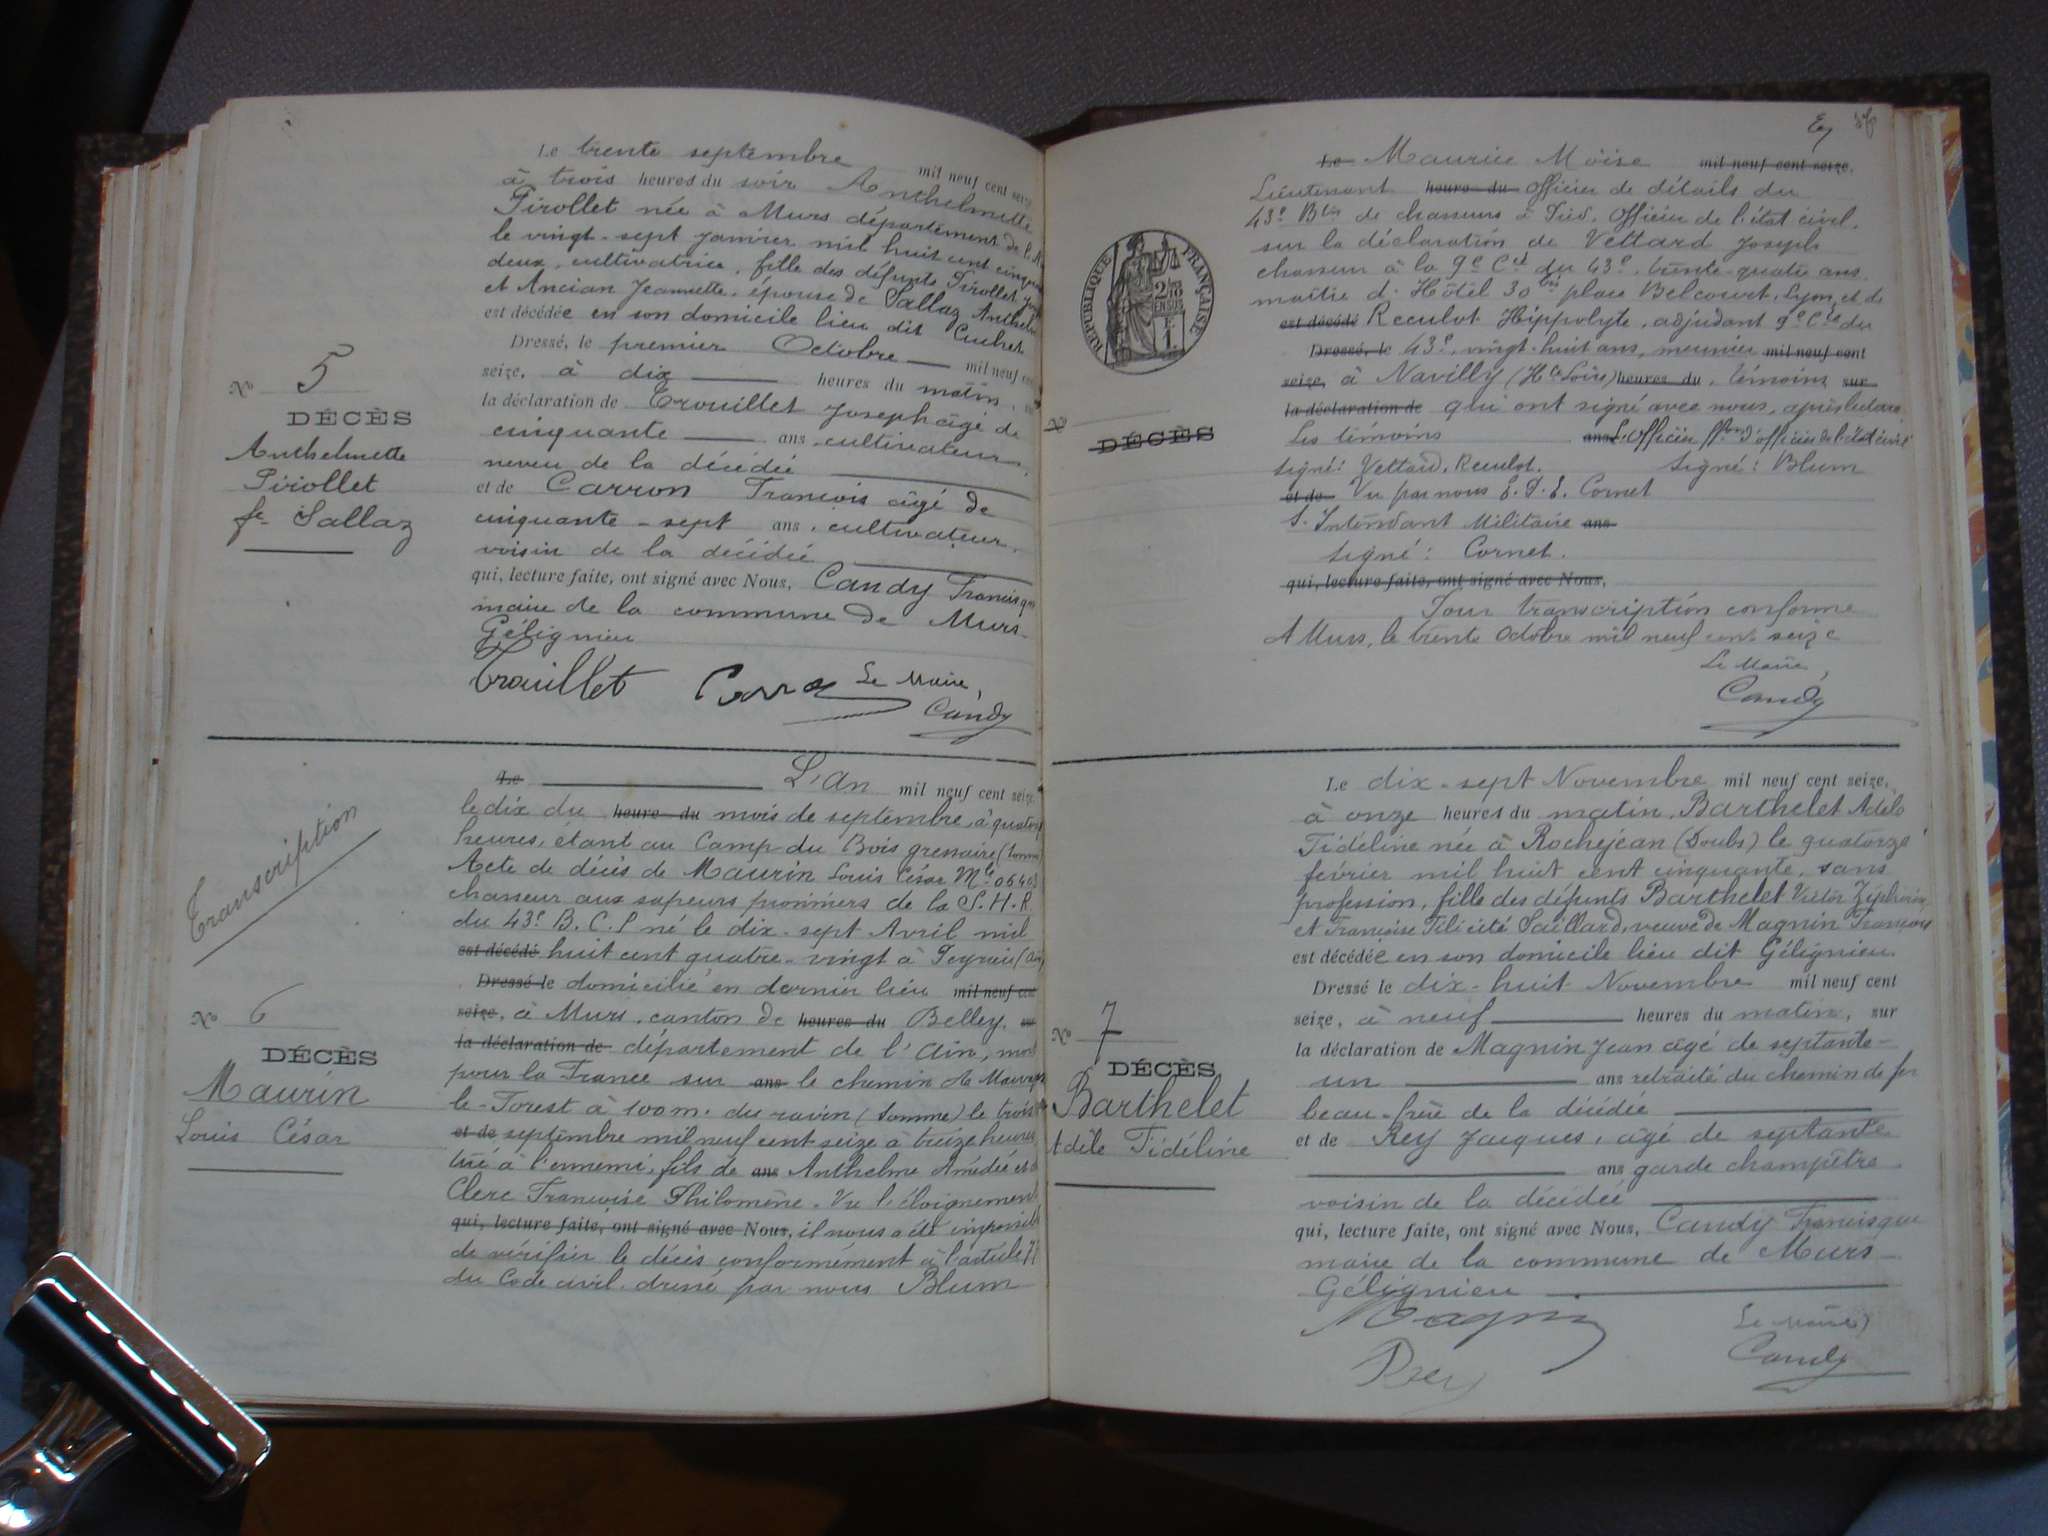 Le trente septembre mil neuf cent seize
à trois heures du soir Anthelmette
Pirollet née à Murs département de l'
le vingt-sept janvier mil huit cent cinquante
deux, cultivatrice, fille des défunts Pirollet
et Ancian Jeannette, épouse de Sallaz Anthelme
est décédée en son domicile lieu dit Cuchet
Dressé, le premier Octobre mil neuf cent
seize, à dix heures du matin,
No 5
la déclaration de Trouillet Joseph âgé de
DÉCÈS
cinquante ans cultivateur,
Anthelmette
neveu de la décédée
Pirollet
et de Carron François âgé de
fe Sallaz
cinquante-sept ans, cultivateur,
voisin de la décédée
qui, lecture faite, ont signé avec Nous, Candy Francisque
maire de la commune de Murs-
Gélignieu
Trouillet Carron Le Maire,
Candy
Transcription
Le L'An mil neuf cent seize
le dix du heure du mois de septembre, à quatorze
heures, étant au Camp du Bois
Acte de décès de Maurin Louis César Mle
chasseur aux sapeurs pionniers de la S.H.R.
du 43e B.C.P né le dix-sept Avril mil
est décédé huit cent quatre-vingt à Peyrieu (Ain)
Dressé le domicilié en dernier lieu mil neuf cent
No 6
seize, à Murs, canton de heures du Belley, sur
DÉCÈS
la déclaration de département de l'Ain, mort
Maurin
pour la France sur ans le chemin de Maurepas
Louis César
le-Forest à 100 m. du ravin (Somme) le trois
et de septembre mil neuf cent seize à treize heures
tué à l'ennemi, fils de ans Anthelme Amédée et de
Clerc Françoise Philomène. Vu l'éloignement
qui, lecture faite, ont signé avec Nous, il nous a été impossible
de vérifier le décès conformément à l'article 77
du Code civil. dressé par nous Blum
Le Maurice Moïse mil neuf cent seize,
Lieutenant heure du officier de détails du
43e Bon de chasseurs à Pied, Officier de l'état civil.
sur la déclaration de Vettard Joseph
chasseur à la 9e Cie du 43e, trente-quatre ans
maître d'Hôtel 30 bis place Bellecourt, Lyon, et de
est décédé Reculot Hippolyte, adjudant 9e Cie du
Dressé, le 43e, vingt-huit ans, meunier mil neuf cent
seize, à Navilly (Hte Loire) heures du, témoins sur
la déclaration de qui ont signé avec nous, après lecture
No
DÉCÈS
Les témoins ans L'Officier ffons d'officier de l'état civil
signé: Vettard, Reculot. Signé: Blum
et de Vu par nous Cornet
S. Intendant Militaire ans
signé: Cornet.
qui, lecture faite, ont signé avec Nous,
Pour transcription conforme
A Murs, le trente Octobre mil neuf cent seize
Le Maire,
Candy
RÉPUBLIQUE FRANÇAISE
Le dix-sept Novembre mil neuf cent seize,
à onze heures du matin, Barthelet Adèle
Fidéline née à Rochejean (Doubs) le quatorze
février mil huit cent cinquante, sans
profession, fille des défunts Barthelet Victor Zéphirin
et Françoise Félicité Saillard, veuve de Magnin François
est décédée en son domicile lieu dit Gélignieu
Dressé le dix-huit Novembre mil neuf cent
seize, à neuf heures du matin, sur
No 7
la déclaration de Magnin Jean âgé de septante-
DÉCÈS
un ans retraité du chemin de fer
Barthelet
beau-frère de la décédée
Adèle Fidéline
et de Rey Jacques, âgé de septante
ans garde champêtre
voisin de la décédée
qui, lecture faite, ont signé avec Nous, Candy Francisque
maire de la commune de Murs-
Gélignieu
Magnin Le Maire
Rey Candy